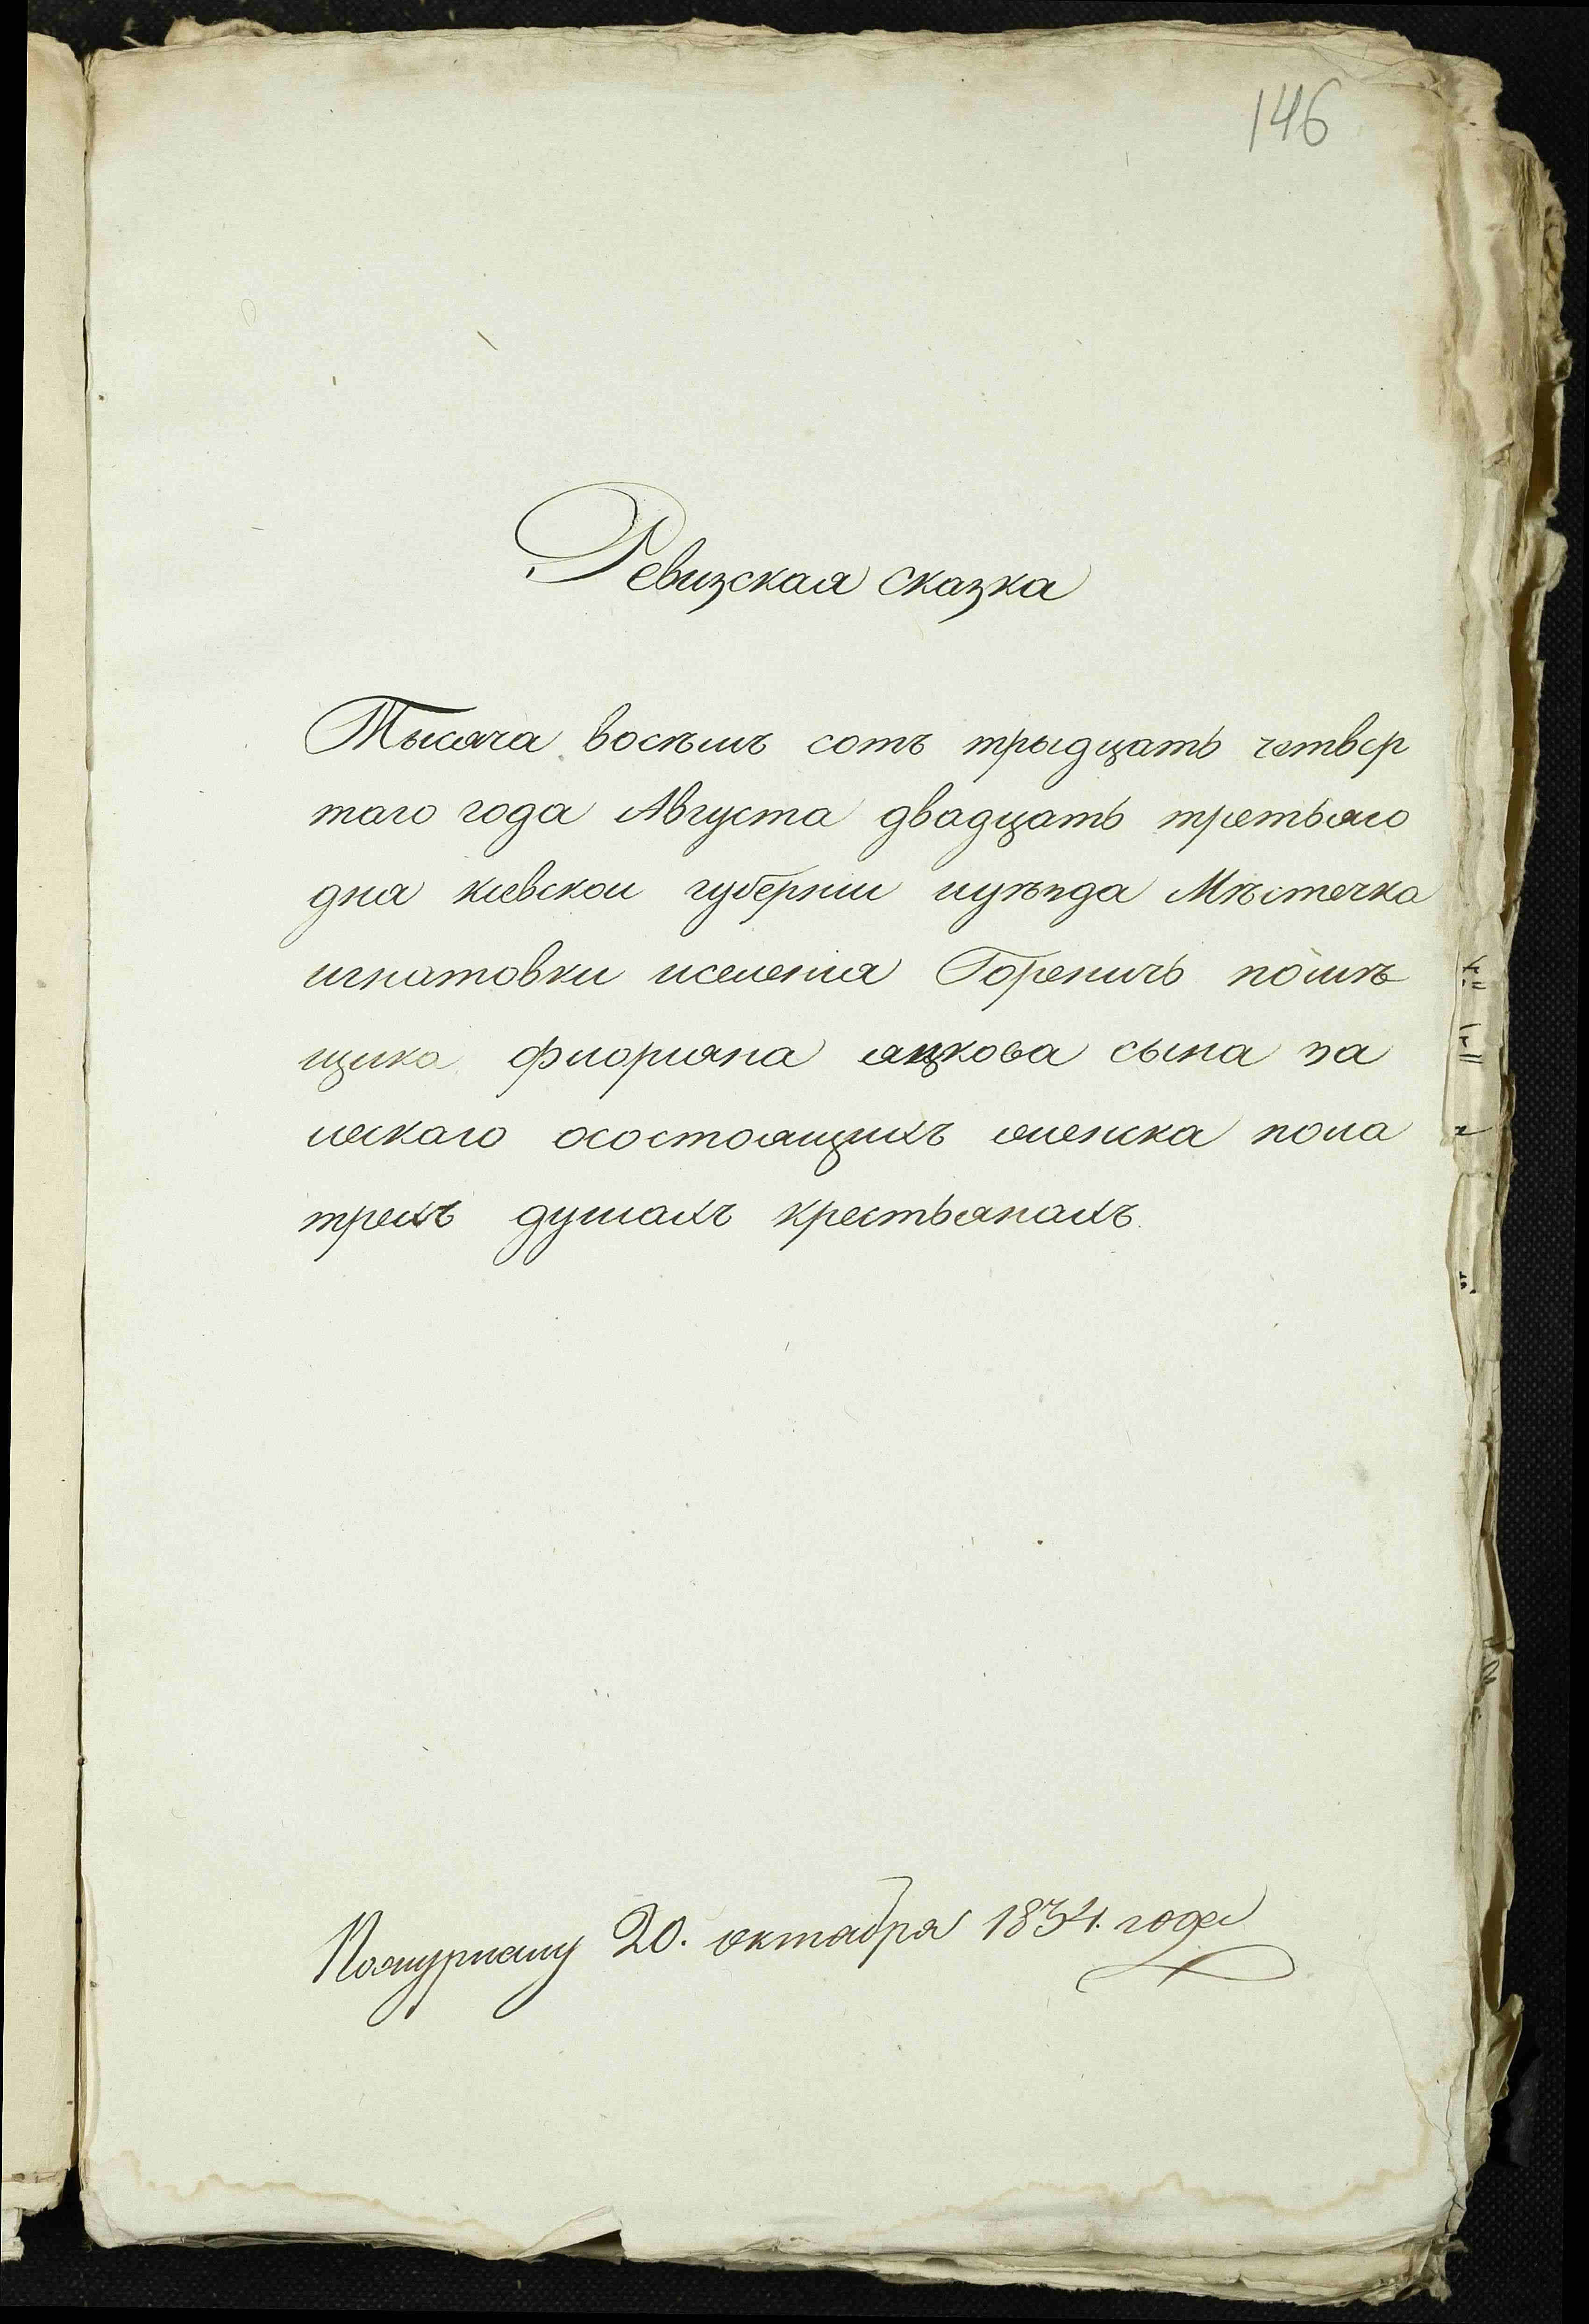 146
Ревизская сказка
Тысяча восѣмъ сотъ трыдцать четвер
таго года Августа двадцать третьяго
дня киевскои губернии иуѣзда Мѣстечка
игнатовки иселения Горениčь помѣ
щика флорияна яцкова сына за
лескаго осостоящихъ женска пола
трехъ душахъ крестьянахъ.
20. октября 1834. года